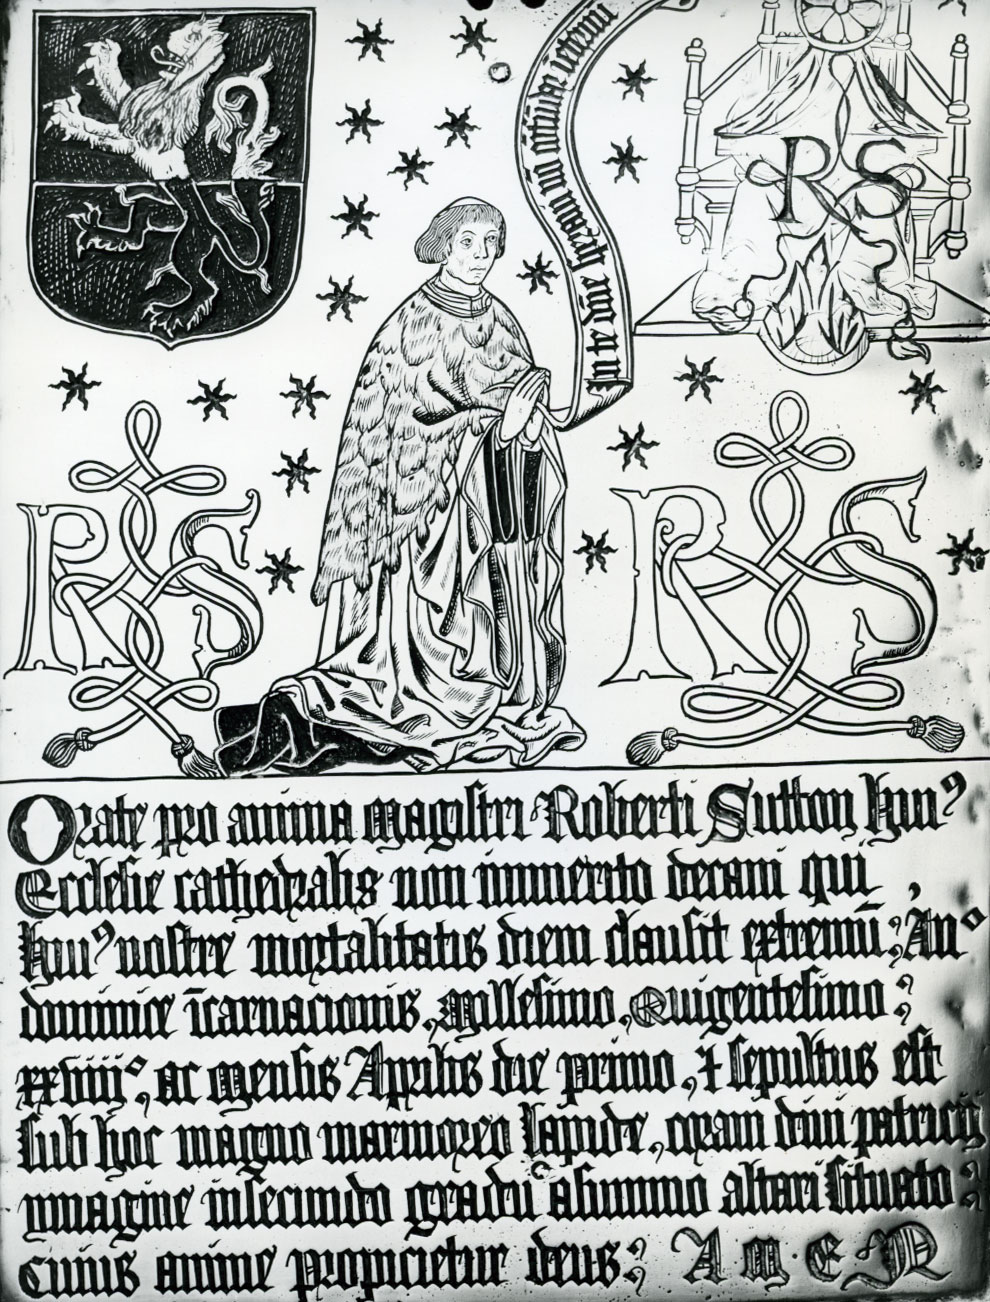 In te dn̄e speravi nō cōfūdar ī eternū
R S
R S
R S
Orate pro anima magistri Roberti Sutton huiꝰ
Ecclesie cathedralis non inmerito decani qui
huiꝰ nostre mortalitatis diem clausit extremū: An°
dominice īcarnacionis, Millesimo, Quigentesimo:
xxviij°, ac mensis Aprilis die primo, ⁊ sepultus est
sub hoc magno marmoreo lapide, coram diui patricij
ymagine insecundo gradu asummo altari situato:
cuius anime propicietur deus: A M E N